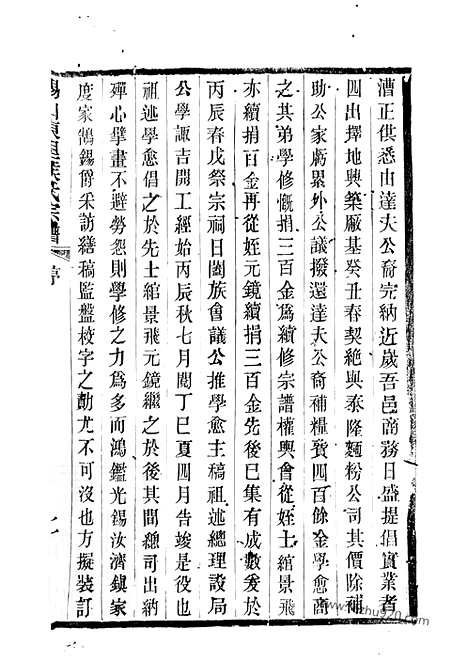 漕正供悉由達夫公裔完納近歲吾邑商務日盛提倡實業者
四出擇地興築廠基癸丑春契絶與泰隆麵粉公司其價除補
助公家虧累外公議撥還達夫公裔補糧賚四百餘金學愈商
之其弟學修慨捐三百金爲續修宗譜權輿會從姪士綰景飛
亦續捐百金再從姪元鏡續捐三百金先後已集有成數爰於
丙辰春戊祭宗祠日閤族會議公推學愈主稿祖述總理設局
公學諏吉開工經始丙辰秋七月閱丁巳夏四月告竣是役也
祖述學愈倡之於先士綰景飛元鏡繼之於後其間總司出納
殫心擘畫不避勞怨則學修之力爲多而鴻鑑光錫汝濟鎮家
度家鵠錫爵采訪繕稿監盤校字之勳尤不可沒也方擬裝訂
氏宗譜
序
www.zhu720.com